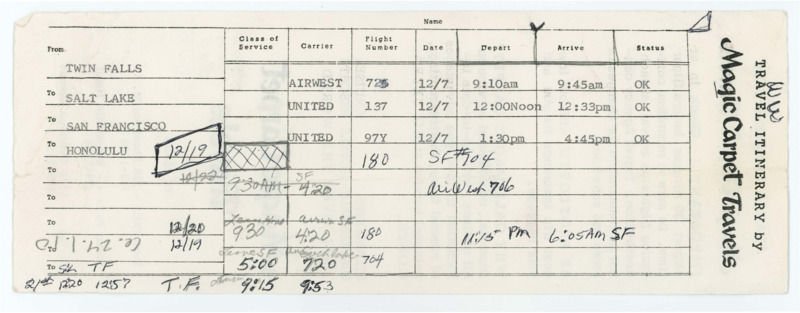 Name
From Class of Service Carrier Flight Number Date Depart Arrive Status
TWIN FALLS
To AIRWEST 725 12/7 9:10am 9:45am OK
SALT LAKE
To UNITED 137 12/7 12:00Noon 12:33pm OK
SAN FRANCISCO
To UNITED 97Y 12/7 1:30pm 4:45pm OK
HONOLULU 12/19 180 SF #704
To 12/22 SF
9:30AM - 4:20 AirWest 706
To
To 12/20 Leave Hno arrive SF
12/19 930 4:20 180 11:15 PM 6:05AM SF
To Leave SF
SL TF 5:00 720 704
21st 1220 12:57 T.F. 9:15 9:53
TRAVEL ITINERARY by
Magic Carpet Travels